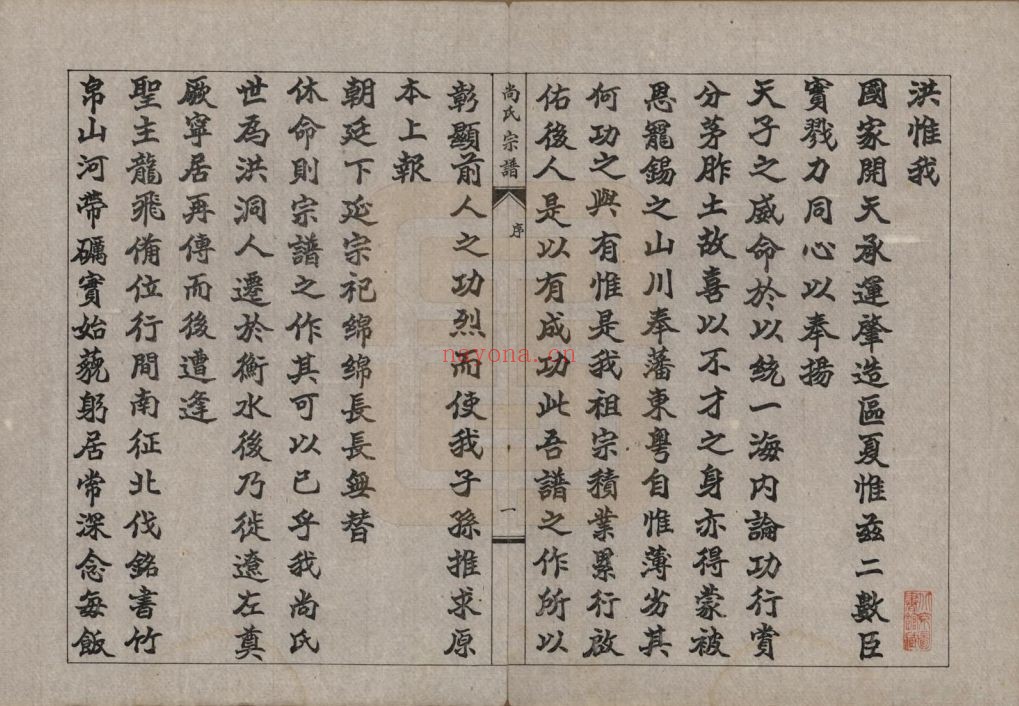 洪惟我
國家開天承運肇造區夏惟茲二數臣
實戮力同心以奉揚
天子之威命於以統一海内論功行賞
分茅胙土故喜以不才之身亦得蒙被
恩寵錫之山川奉藩東粵自惟薄劣其
何功之與有惟是我祖宗積業累行啟
佑後人是以有成功此吾譜之作所以
尚氏宗譜
序
一
彰顯前人之功烈而使我子孫推求原
本上報
朝廷下延宗祀綿綿長長無替
休命則宗譜之作其可以已乎我尚氏
世為洪洞人遷於衡水後乃徙遼左奠
厥寧居再傳而後遭逢
聖主龍飛俻位行間南征北伐銘書竹
帛山河帶礪實始藐躬居常深念每飯
nayona.cn